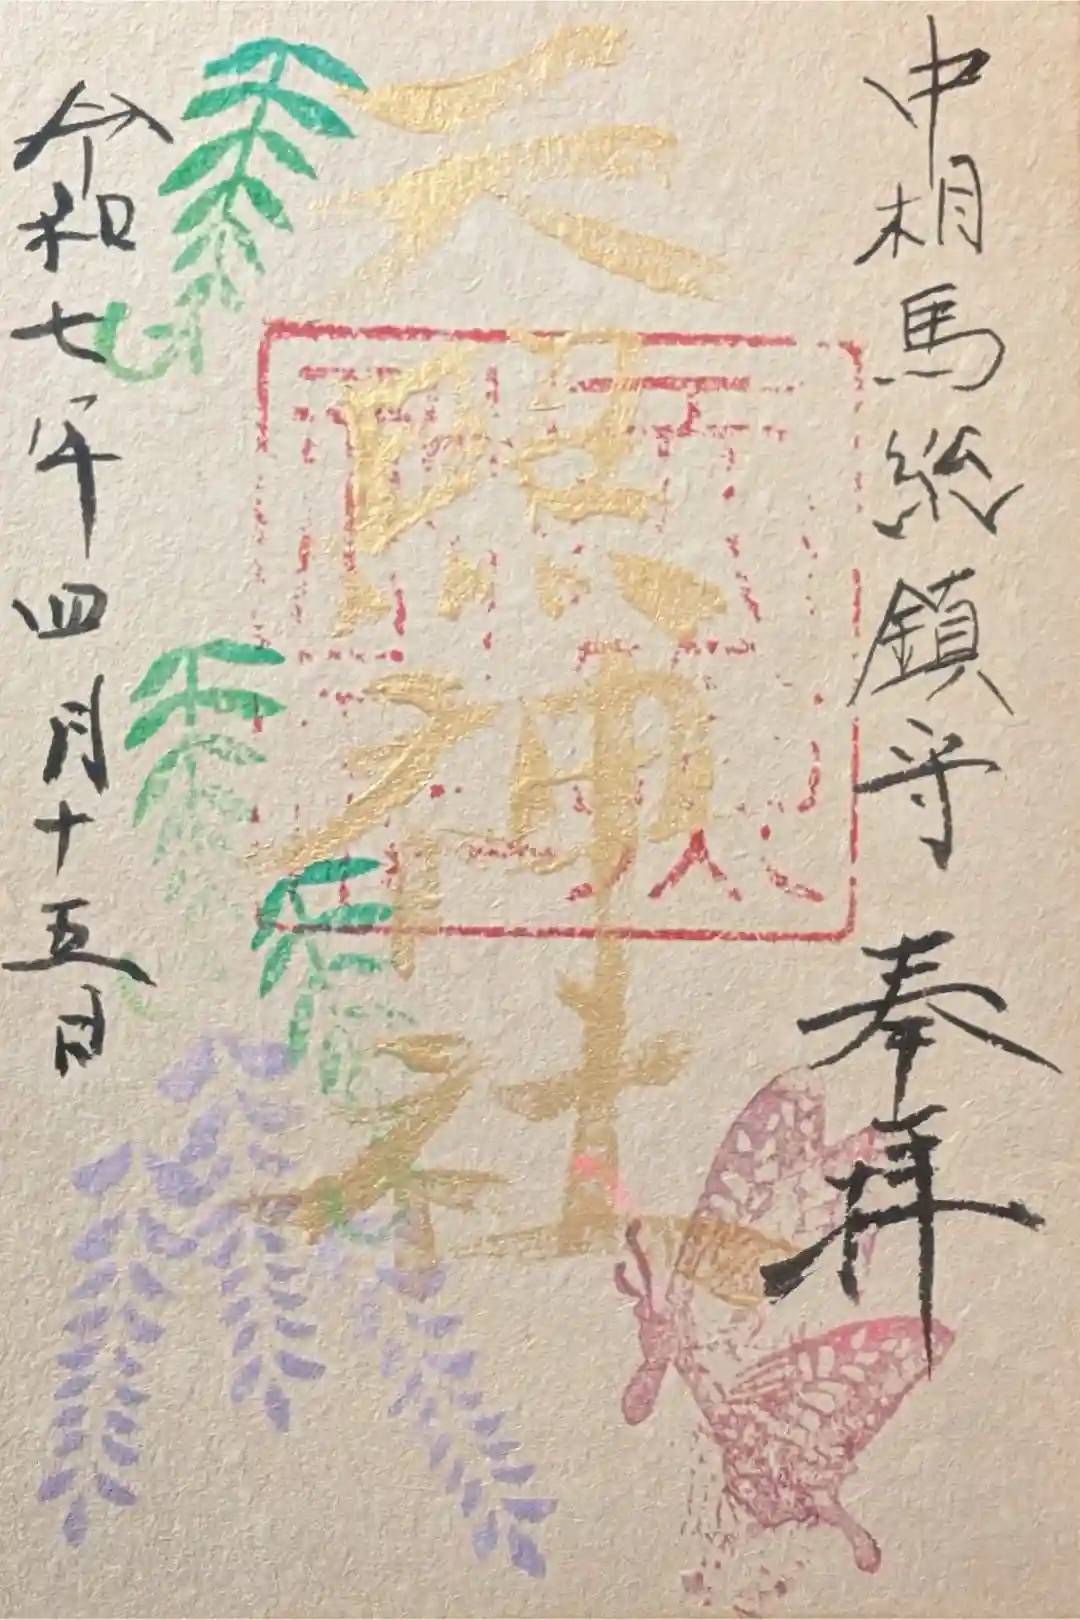 中相馬総鎮守 奉拝
天照神社
令和七年四月十五日